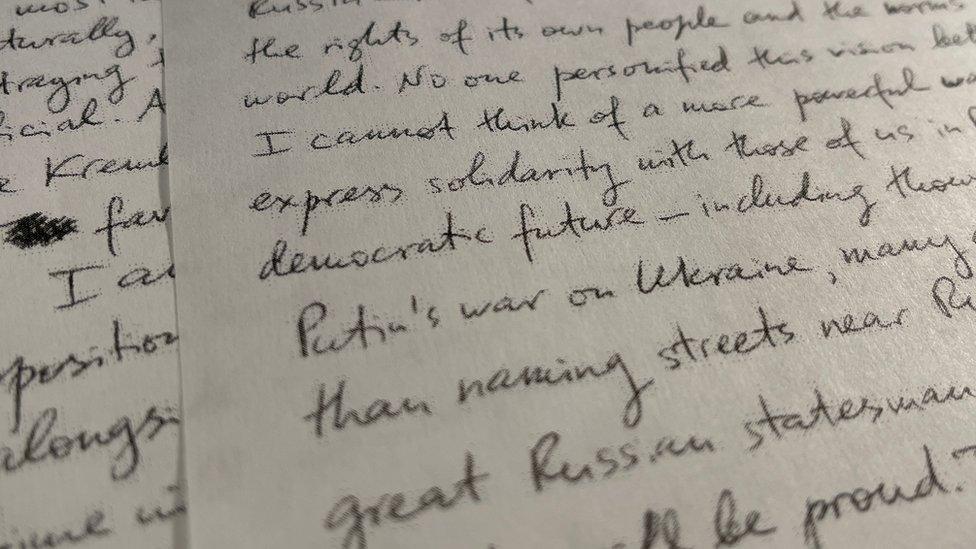 most
turally,
traying
icial. A
Kreml
far
I a
position
alongsi
Russia
the rights of its own people and the norms
world. No one personified this vision bet
I cannot think of a more powerful wa
express solidarity with those of us in
democratic future – including thous
Putin's war on Ukraine, many
than naming streets near Ru
great Russian statesman
be proud.